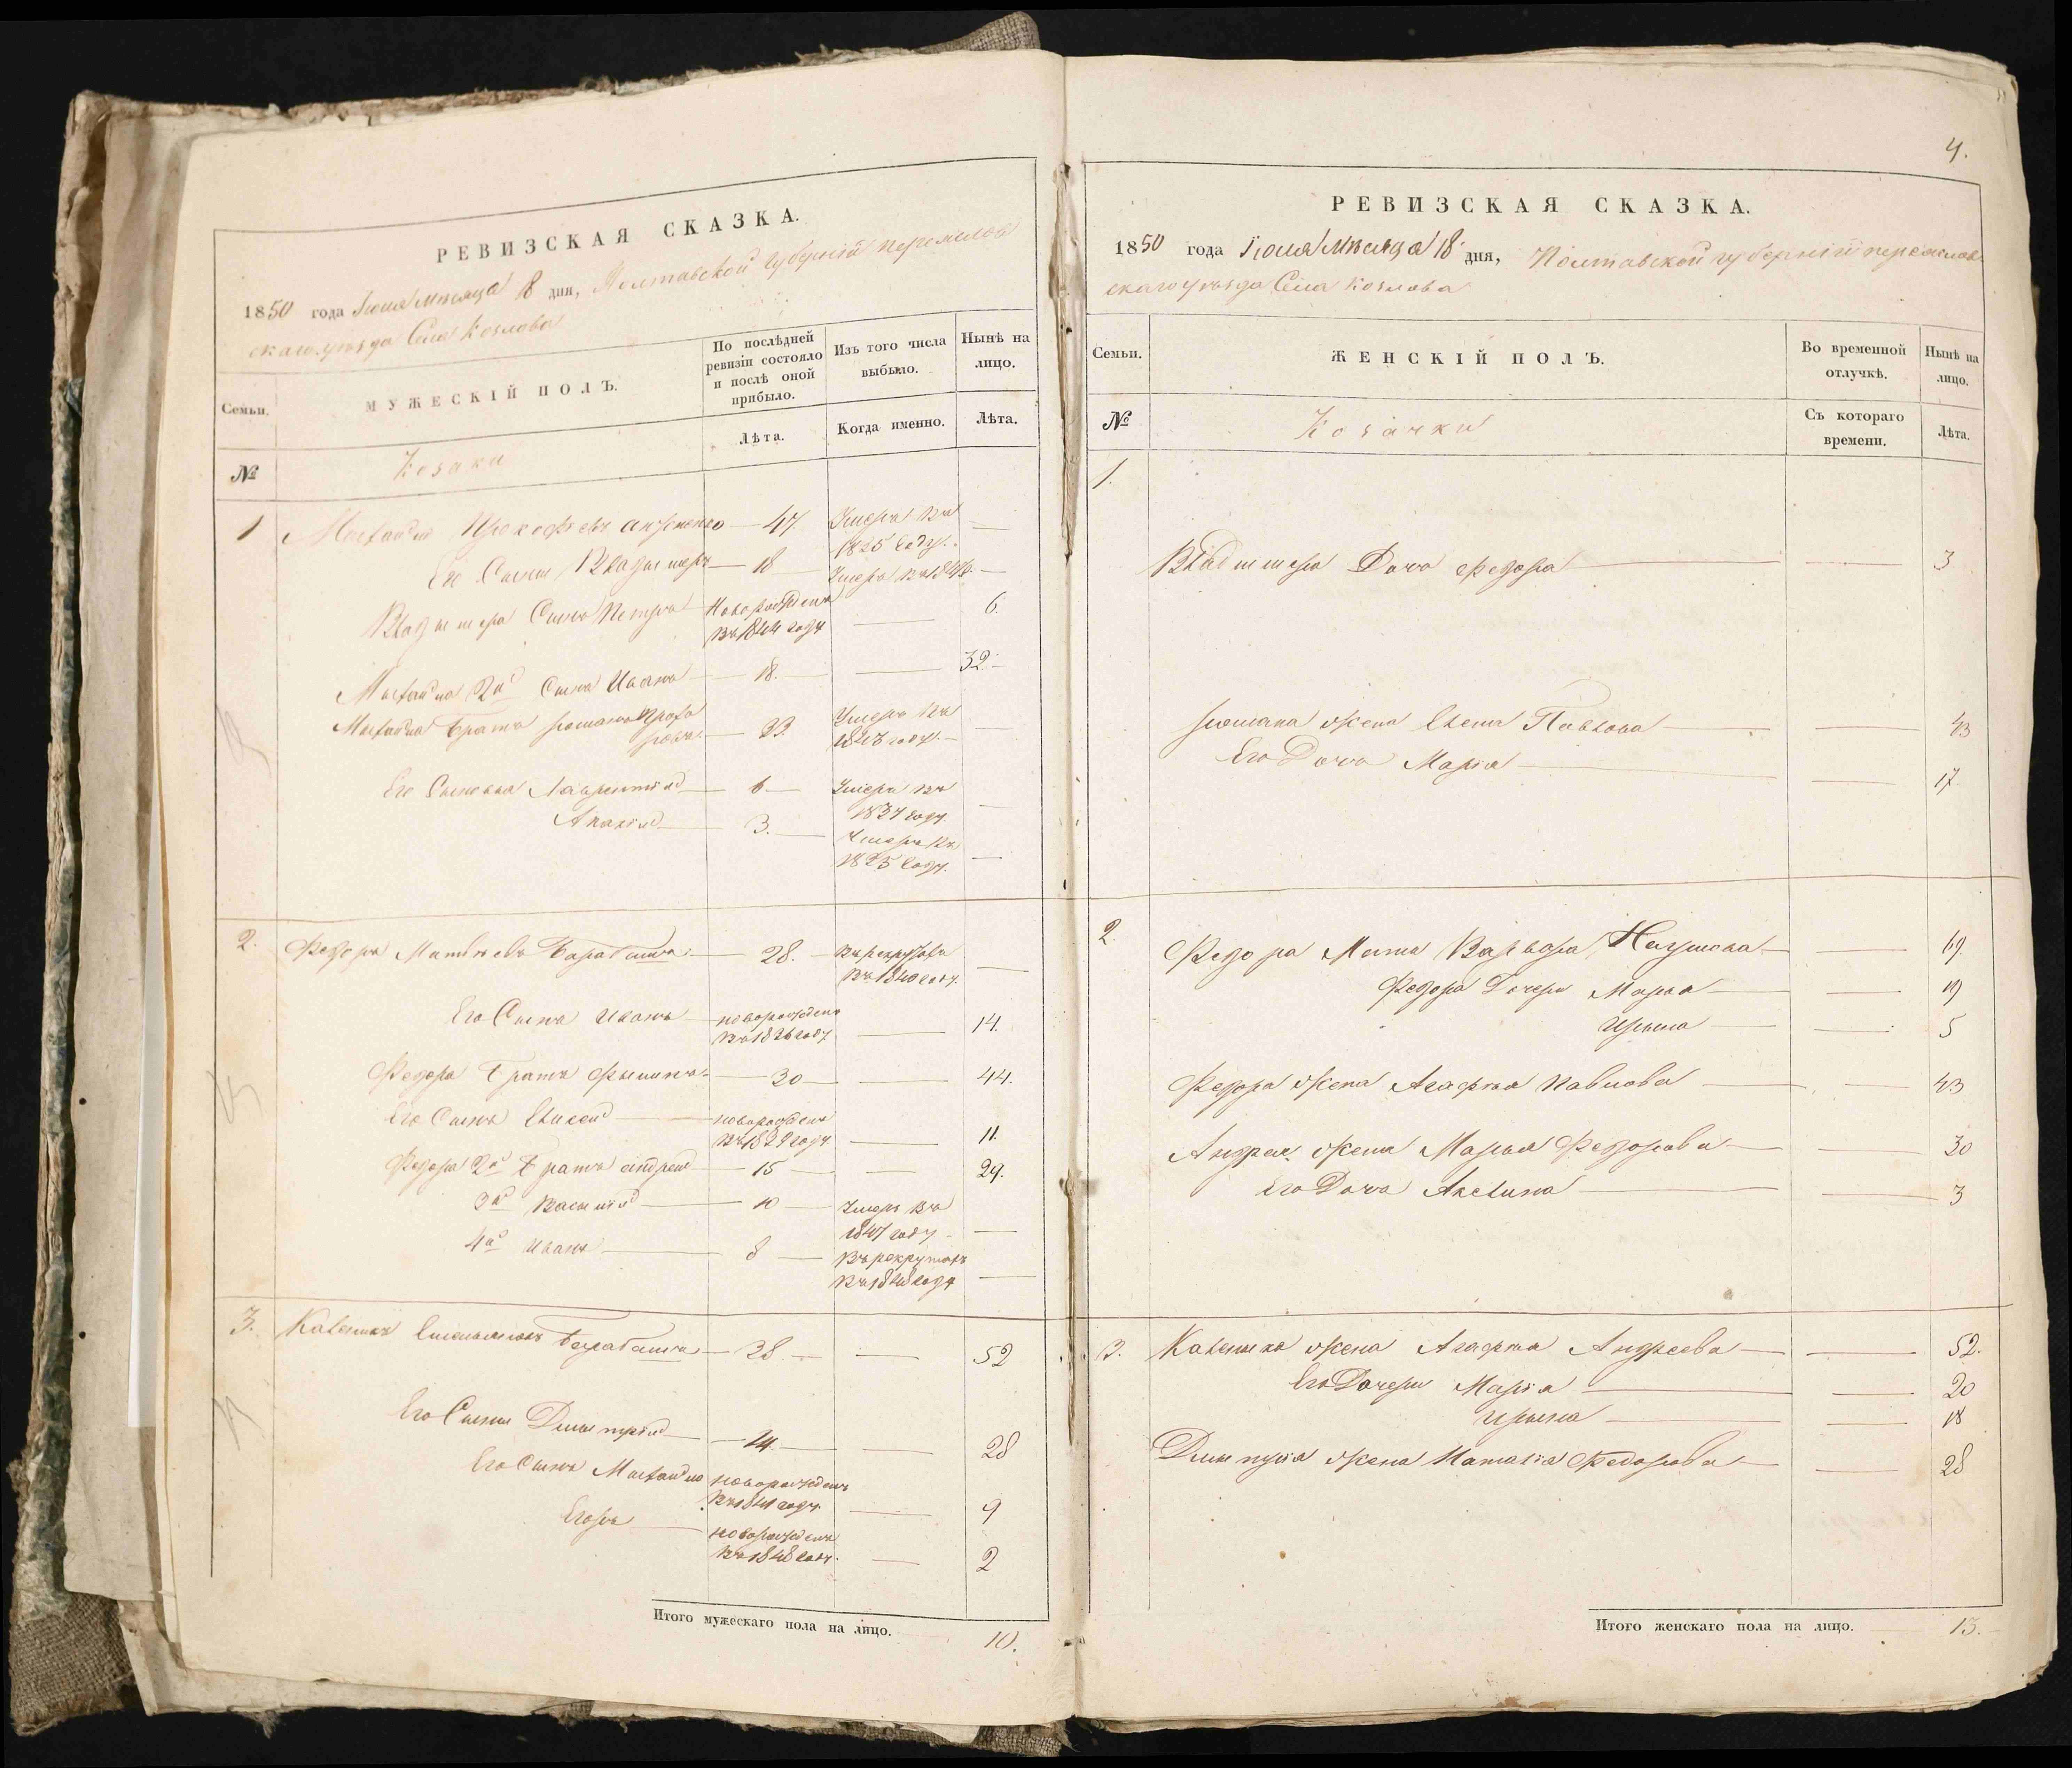 РЕВИЗСКАЯ СКАЗКА.
1850 года Іюля Мѣсяца 18 дня, Полтавской губерніи Переяслов
скаго уѣзда Села Козлова
Семьи.
МУЖЕСКІЙ ПОЛЪ.
По послѣдней ревизіи состояло и послѣ оной прибыло.
Изъ того числа выбыло.
Нынѣ на лицо.
№
Козаки
Лѣта.
Когда именно.
Лѣта.
1 Михайло Прокофьевъ — 47. Умеръ въ 1825 году. —
Его Сынъ Владимеръ — 18 Умеръ въ —
Владимера Сынъ Петръ Новорожденъ въ 1844 году — 6.
Михайла 2й Сынъ Иванъ — 18. — 32.
Михайла Братъ Романъ — 23. Умеръ въ году —
Его Сыновья Лаврентій — 6 — Умеръ въ 1837 году. —
3. — Умеръ въ 1825 году. —
2. Федоръ Матвѣевъ Барабашъ — 28. — въ рекруты въ 1840 году. —
Его Сынъ Иванъ — новорожденъ въ 1836 году — 14.
Федора Братъ Филипъ — 30 — — 44.
Его Сынъ Елисей — новорожденъ въ 1839 году — 11.
Федора 2й Братъ Андрей — 15 — — 29.
3й Василій — 10 — Умеръ въ 1847 году —
4й Иванъ — 8 — въ рекруты въ 1848 году —
3. Каленикъ Емельяновъ Барабашъ — 38. — — 52
Его Сынъ Дмитрій — 14. — — 28
Его Сынъ Михайло новорожденъ въ 1841 году — 9
Егоръ — новорожденъ въ 1848 году. — 2
Итого мужескаго пола на лицо. 10.
4.
РЕВИЗСКАЯ СКАЗКА.
1850 года Іюля Мѣсяца 18 дня, Полтавской губерніи Переяслов
скаго уѣзда Села Козлова
Семьи.
ЖЕНСКІЙ ПОЛЪ.
Во временной отлучкѣ.
Нынѣ на лицо.
№
Козачки
Съ котораго времени.
Лѣта.
1.
Владимера Дочь Федора — — 3
Романа жена Елена Павлова — — 43
Его Дочь Марія — — 17.
2. Федора Мать Варвара Наумова — — 69.
Федора Дочери Марья — — 19
Ирына — — 5
Федора жена Агафья Павлова — — 43
Андрея жена Марья Федорова — — 30
Его Дочь Акелина — — 3
3. Каленика жена Агафья Андреева — — 52.
Его Дочери Марія — — 20
Ирына — — 18
Дмитрія жена Наталія Федорова — — 28
Итого женскаго пола на лицо. — 13.